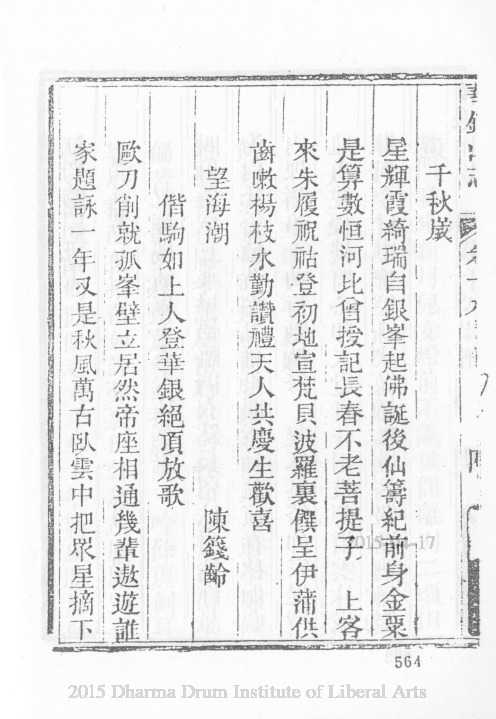 千秋嵗
星輝霞綺瑞自銀峯起佛誕後仙籌紀前身金粟
是算數恒河比曾授記長春不老菩提子　上客
來朱履祝祜登初地宣梵貝波羅裏饌呈伊蒲供
齒嗽楊枝水勤讚禮天人共慶生歡喜
望海潮
偕駒如上人登華銀絕頂放歌　陳籛齡
歐刀削就孤峯壁立居然帝座相通幾輩遨遊誰
家題詠一年又是秋風萬古臥雲中把眾星摘下
564
2015 Dharma Drum Institute of Liberal Arts